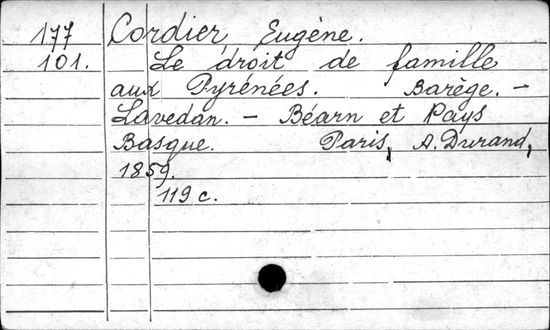 177 Cordier Eugène.
101. Le droit de famille
aux Pyrénées. Barège. -
Lavedan. - Béarn et Pays
Basque. Paris, A. Durand,
1859.
119 c.